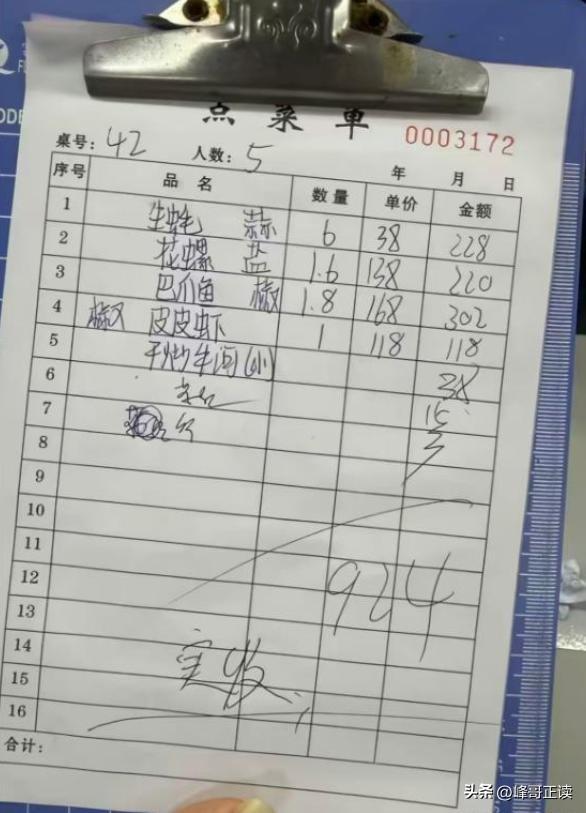 点菜单
0003172
桌号: 42 人数: 5 年 月 日
序号 品名 数量 单价 金额
1 生蚝 蒜 6 38 228
2 花螺 盐 1.6 138 220
3 巴爪鱼 椒 1.8 168 302
4 椒 皮皮虾 1 118 118
5 干炒牛河(小) 38
6 15
7 3
8
9
10
11
12 924
13
14
15 实收
16
合计:
头条 @峰哥正读